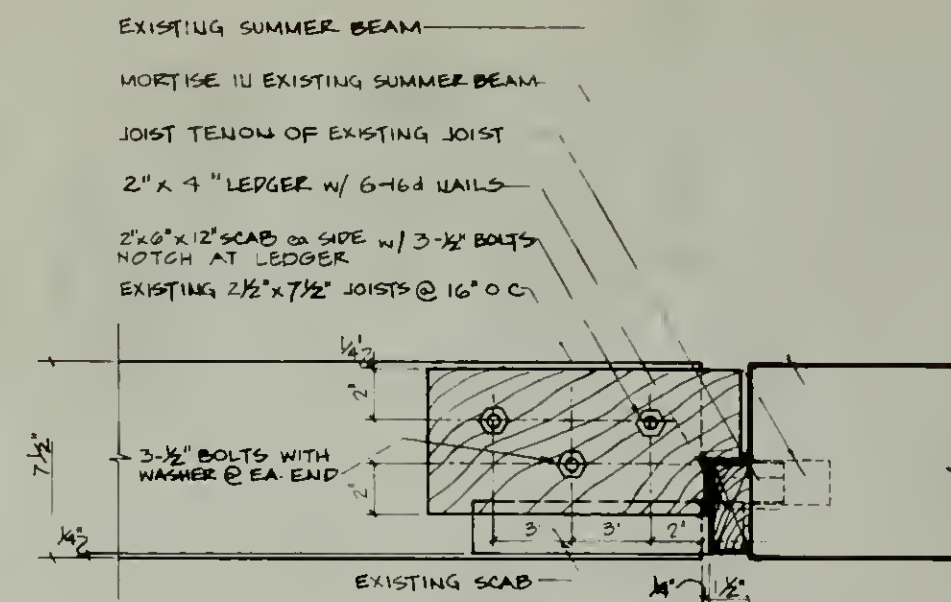 EXISTING SUMMER BEAM
MORTISE IN EXISTING SUMMER BEAM
JOIST TENON OF EXISTING JOIST
2" x 4" LEDGER w/ 6-16d NAILS
2"x6"x12" SCAB ea SIDE w/ 3-½" BOLTS
NOTCH AT LEDGER
EXISTING 2½"x7½" JOISTS @ 16" O C
¼"
2"
7½"
3-½" BOLTS WITH
WASHER @ EA. END
2"
3'
3'
2'
¼"
EXISTING SCAB
¼"
1½"